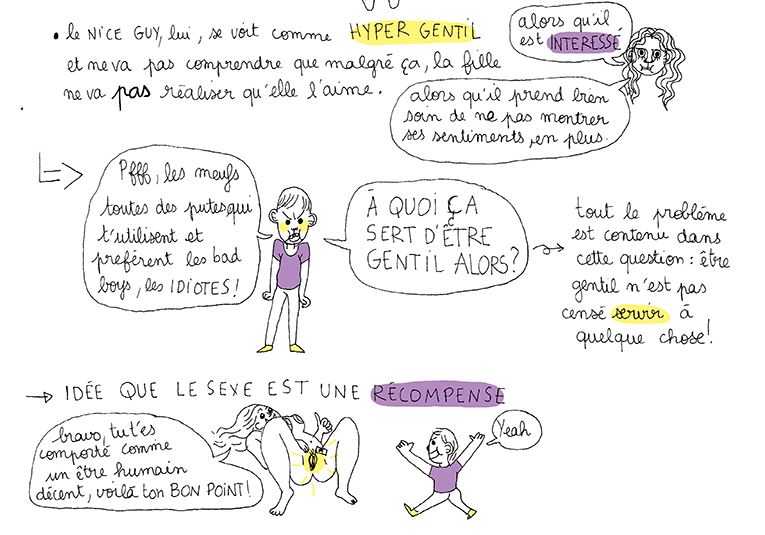 • le NICE GUY, lui, se voit comme HYPER GENTIL
et ne va pas comprendre que malgré ça, la fille
ne va pas réaliser qu'elle l'aime.
alors qu'il
est INTERESSÉ
alors qu'il prend bien
soin de ne pas montrer
ses sentiments, en plus.
Pfff, les meufs
toutes des putes qui
t'utilisent et
préfèrent les bad
boys, les IDIOTES!
À QUOI ÇA
SERT D'ÊTRE
GENTIL ALORS?
tout le problème
est contenu dans
cette question : être
gentil n'est pas
censé servir à
quelque chose!
→ IDÉE QUE LE SEXE EST UNE RÉCOMPENSE
bravo, tu t'es
comporté comme
un être humain
décent, voilà ton BON POINT!
Yeah